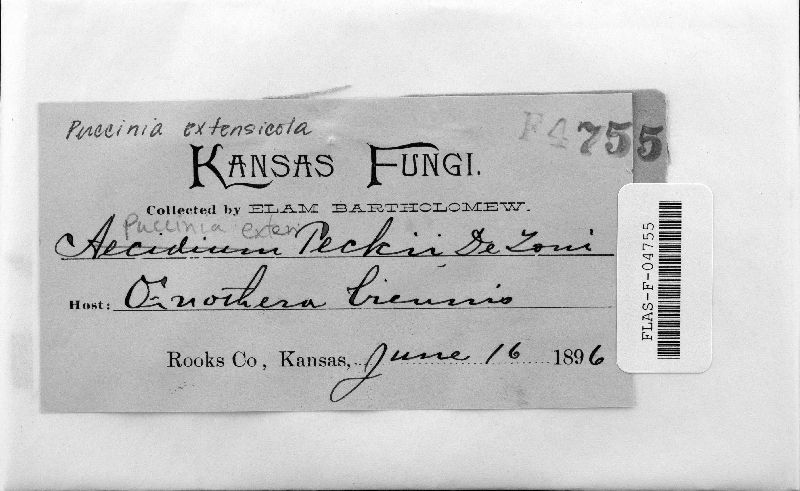 Puccinia extensicola
F4755
KANSAS FUNGI.
Collected by ELAM BARTHOLOMEW.
Puccinia exten
Aecidium Peckii De Toni
Host: Œnothera biennis
Rooks Co, Kansas, June 16 1896
FLAS-F-04755